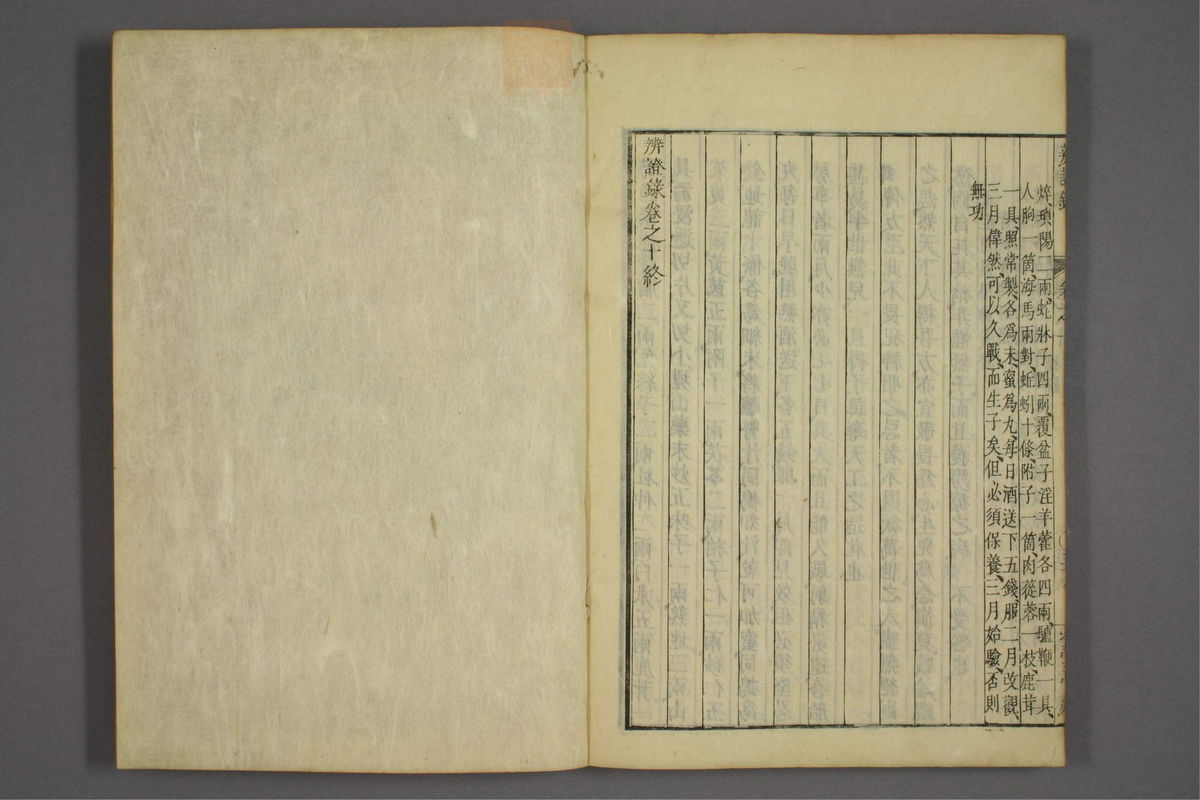 焠、瑣陽二兩、蛇牀子四兩、覆盆子淫羊藿各四兩、驢鞭一具、
人胞一箇、海馬兩對、蚯蚓十條、附子一箇、肉蓯蓉一枝、鹿茸
一具、照常製、各爲末、蜜爲丸、每日酒送下五錢、服二月改觀、
三月偉然、可以久戰、而生子矣、但必須保養、三月始驗、否則
無功
辨證錄卷之十終